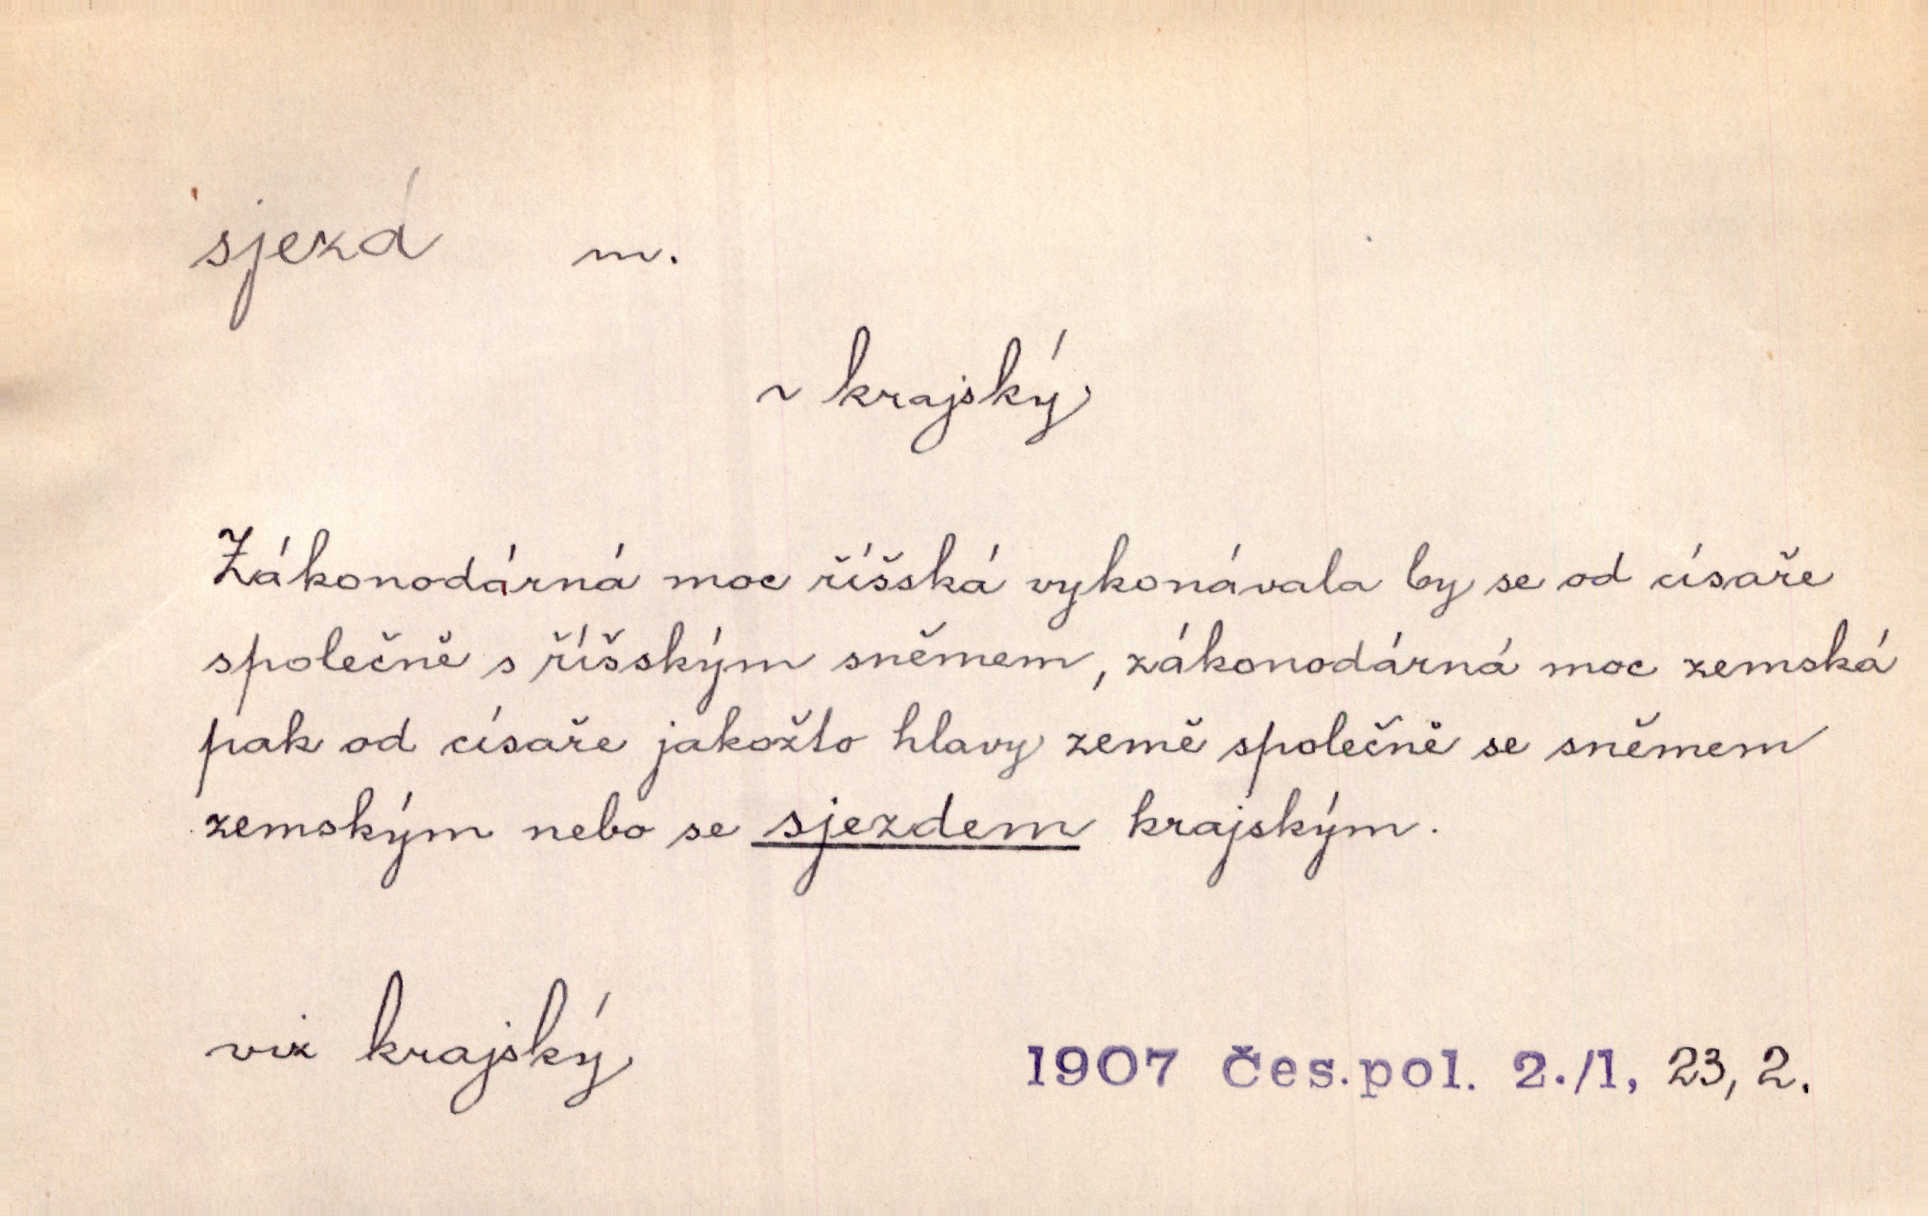 sjezd m.
~ krajský
Zákonodárná moc říšská vykonávala by se od císaře
společně s říšským sněmem, zákonodárná moc zemská
pak od císaře jakožto hlavy země společně se sněmem
zemským nebo se sjezdem krajským.
viz krajský
1907 Čes.pol. 2./1, 23, 2.